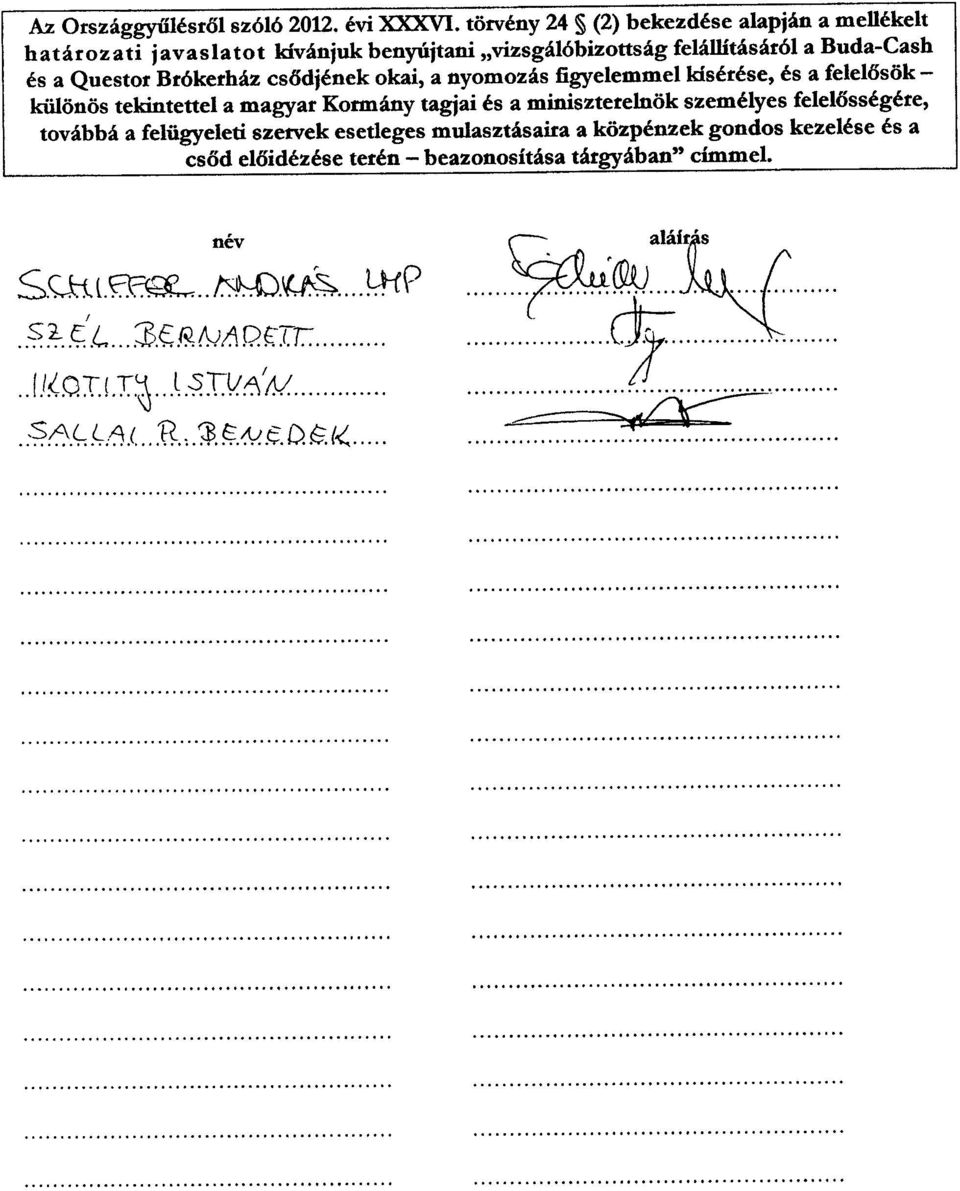 Az Országgyűlésről szóló 2012. évi XXXVI. törvény 24 § (2) bekezdése alapján a mellékelt
határozati javaslatot kívánjuk benyújtani „vizsgálóbizottság felállításáról a Buda-Cash
és a Questor Brókerház csődjének okai, a nyomozás figyelemmel kísérése, és a felelősök –
különös tekintettel a magyar Kormány tagjai és a miniszterelnök személyes felelősségére,
továbbá a felügyeleti szervek esetleges mulasztásaira a közpénzek gondos kezelése és a
csőd előidézése terén – beazonosítása tárgyában” címmel.
név aláírás
SCHIFFER ANDRÁS LMP
SZÉL BERNADETT
IKOTITY ISTVÁN
SALLAI R. BENEDEK